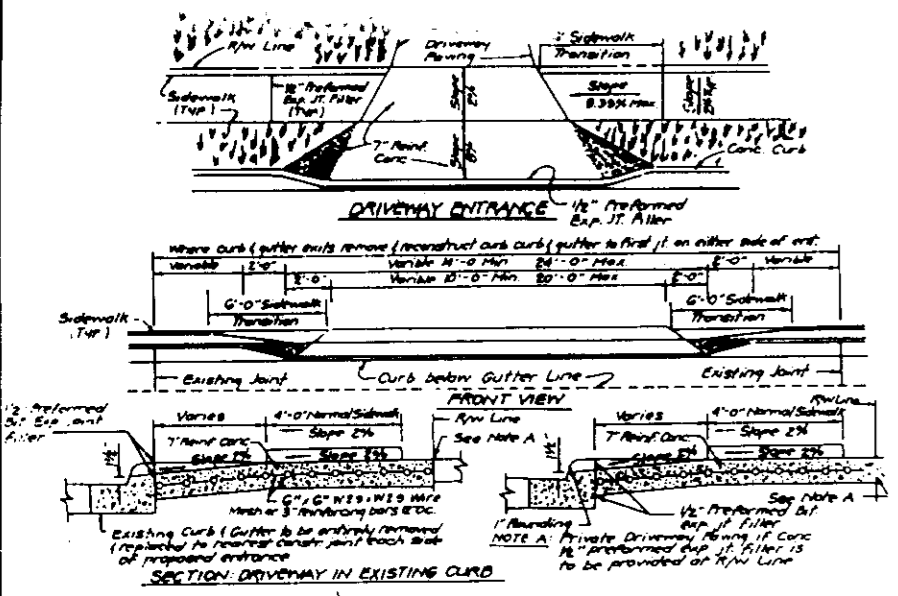 R/W Line
Driveway
Paving
Sidewalk
Transition
Sidewalk
(Typ)
1/2" Preformed
Exp. JT. Filler
(Typ.)
Slope
2%
Slope
8.33% Max
Slope
7" Reinf.
Conc.
Slope
Conc. Curb
DRIVEWAY ENTRANCE
1/2" Preformed
Exp. JT. Filler
Where curb & gutter exits remove & reconstruct curb curb & gutter to first jt. on either side of ent.
Variable 2'-0" Varible 14'-0" Min 24'-0" Max 2'-0" Variable
2'-0" Varible 10'-0" Min. 20'-0" Max. 2'-0"
6'-0" Sidewalk
Transition
6'-0" Sidewalk
Transition
Sidewalk
(Typ)
Existing Joint
Curb below Gutter Line
Existing Joint
FRONT VIEW
1/2" Preformed
Bit. Exp. Joint
Filler
Varies
4'-0" Normal Sidewalk
R/W Line
7" Reinf. Conc.
Slope 2%
See Note A
1 1/2
Slope 2%
Slope 2%
6" x 6" W2.9 x W2.9 Wire
Mesh or 3 reinforcing bars @ OC.
Existing Curb & Gutter to be entirely removed
& replaced to nearest constr. joint each side
of proposed entrance
SECTION: DRIVEWAY IN EXISTING CURB
Varies
4'-0" Normal Sidewalk
R/W Line
7" Reinf. Conc.
Slope 2%
1 1/2
Slope
Slope 2%
See Note A
1" Rounding
1/2" Preformed Bit.
exp. jt. filler
NOTE A: Private Driveway Paving if Conc
1/2" preformed exp. jt. filler is
to be provided at R/W Line